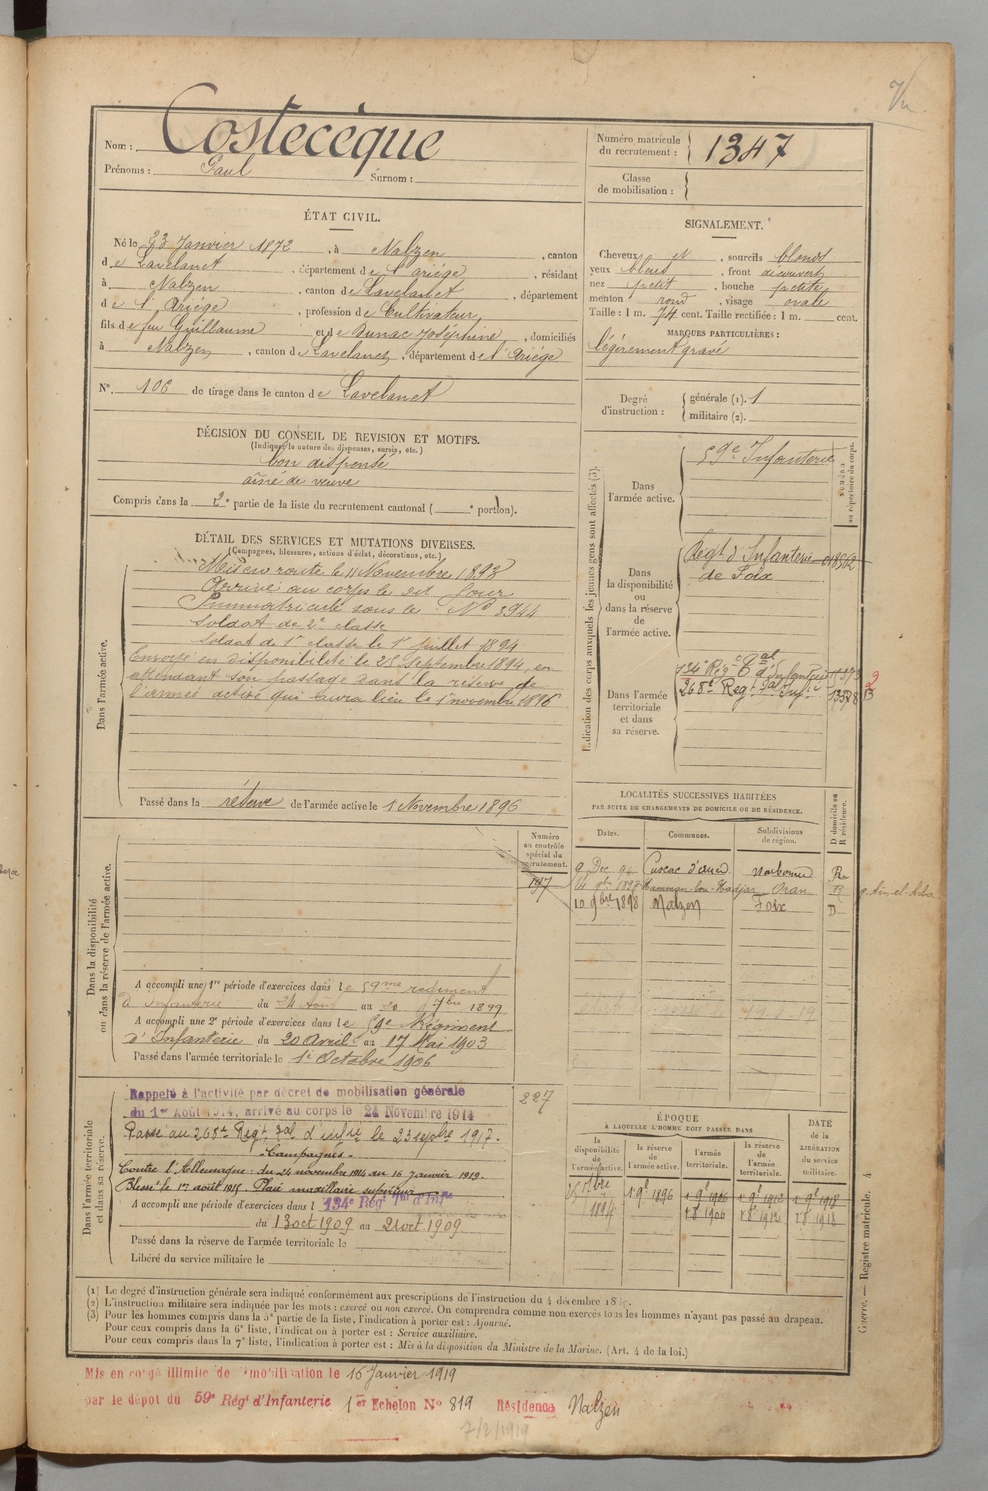 Vu
Nom : Costecèque
Prénoms : Paul Surnom :
Numéro matricule du recrutement : 1347
Classe de mobilisation :
ÉTAT CIVIL.
Né le 23 Janvier 1872, à Nalzen, canton
de Lavelanet, département de l'ariége, résidant
à Nalzen, canton de Lavelanet, département
de l'Ariége, profession de Cultivateur,
fils de feu Guillaume et de Dunac Joséphine, domiciliés
à Nalzen, canton de Lavelanet, département de l'Ariége
N° 106 de tirage dans le canton de Lavelanet
SIGNALEMENT.
Cheveux et, sourcils blonds
yeux bleus, front découvert
nez petit, bouche petite
menton rond, visage ovale
Taille : 1 m. 74 cent. Taille rectifiée : 1 m. cent.
MARQUES PARTICULIÈRES :
légèrement gravé
Degré d'instruction : générale (1). 1
militaire (2).
DÉCISION DU CONSEIL DE REVISION ET MOTIFS.
(Indiquer la nature des dispenses, sursis, etc.)
bon dispensé
aîné de veuve
Compris dans la 2e partie de la liste du recrutement cantonal ( e portion).
DÉTAIL DES SERVICES ET MUTATIONS DIVERSES.
(Campagnes, blessures, actions d'éclat, décorations, etc.)
Dans l'armée active.
Mis en route le 11 Novembre 1893
Arrivé au corps le dit Jour
Immatriculé sous le N° 2944
Soldat de 2e classe
Soldat de 1e classe le 1er Juillet 1894
Envoyé en disponibilité le 25 Septembre 1894, en
attendant son passage dans la réserve de
l'armée active qui aura lieu le 1 novembre 1896
Passé dans la réserve de l'armée active le 1 Novembre 1896
Indication des corps auxquels les jeunes gens sont affectés (3).
NUMÉRO au répertoire du corps.
Dans l'armée active.
59e Infanterie
Dans la disponibilité ou dans la réserve de l'armée active.
Regt d'Infanterie
de Foix
Dans l'armée territoriale et dans sa réserve.
134e Régt Tal d'Infanterie
268e Regt Tal Infie
LOCALITÉS SUCCESSIVES HABITÉES
PAR SUITE DE CHANGEMENTS DE DOMICILE OU DE RÉSIDENCE.
Dates. Communes. Subdivisions de région. D domicile ou R résidence.
9 Dec 94 Cuxac d'aude Narbonne R
1897 Hammam-bou-Hadjar Oran R
10 9bre 1898 Nalzen Foix D
Dans la disponibilité ou dans la réserve de l'armée active.
Numéro au contrôle spécial du recrutement.
197
A accompli une 1re période d'exercices dans le 59me régiment
d'Infanterie du 24 Aout au 20 7bre 1899
A accompli une 2e période d'exercices dans le 59e Régiment
d'Infanterie du 20 Avril au 17 Mai 1903
Passé dans l'armée territoriale le 1er Octobre 1906
Dans l'armée territoriale et dans sa réserve.
227
Rappelé à l'activité par décret de mobilisation générale
du 1er Août 1914, arrivé au corps le 24 Novembre 1914
Passé au 268e Regt Tal d'infie le 23 septbre 1917.
Campagnes
Contre l'Allemagne : du 24 novembre 1914 au 16 janvier 1919.
Blessé le 1er août 1915. Plaie maxillaire supérieur
A accompli une période d'exercices dans l 134e Régt Tal d'Infie
du 13 oct 1909 au 21 oct 1909
Passé dans la réserve de l'armée territoriale le
Libéré du service militaire le
ÉPOQUE
À LAQUELLE L'HOMME DOIT PASSER DANS
la disponibilité de l'armée active. la réserve de l'armée active. l'armée territoriale. la réserve de l'armée territoriale. DATE de la LIBÉRATION du service militaire.
25 7bre 1894 1 9e 1896 1 9e 1906 1 9e 1912 1 9e 1918
1 8 1906 1 8e 1912 1 8e 1918
(1) Le degré d'instruction générale sera indiqué conformément aux prescriptions de l'instruction du 4 décembre
(2) L'instruction militaire sera indiquée par les mots : exercé ou non exercé. On comprendra comme non exercés tous les hommes n'ayant pas passé au drapeau.
(3) Pour les hommes compris dans la 5e partie de la liste, l'indication à porter est : Ajourné.
Pour ceux compris dans la 6e liste, l'indication à porter est : Service auxiliaire.
Pour ceux compris dans la 7e liste, l'indication à porter est : Mis à la disposition du Ministre de la Marine. (Art. 4 de la loi.)
Guerre. — Registre matricule. 4
Mis en congé illimité de démobilisation le 16 Janvier 1919
par le dépôt du 59e Régt d'Infanterie 1er Echelon N° 819 Résidence Nalzen
7/2/1919